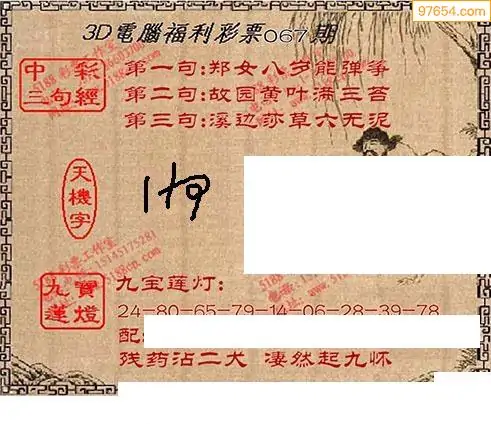 97654.com
3D電腦福利彩票067期
中彩
三句經
第一句:郑女八岁能弹筝
第二句:故园黄叶满三苔
第三句:溪边莎草六无泥
天機字
九寶
蓮燈
九宝莲灯:
24-80-65-79-14-06-28-39-78
配:
残药沾二犬 凄然起九怀